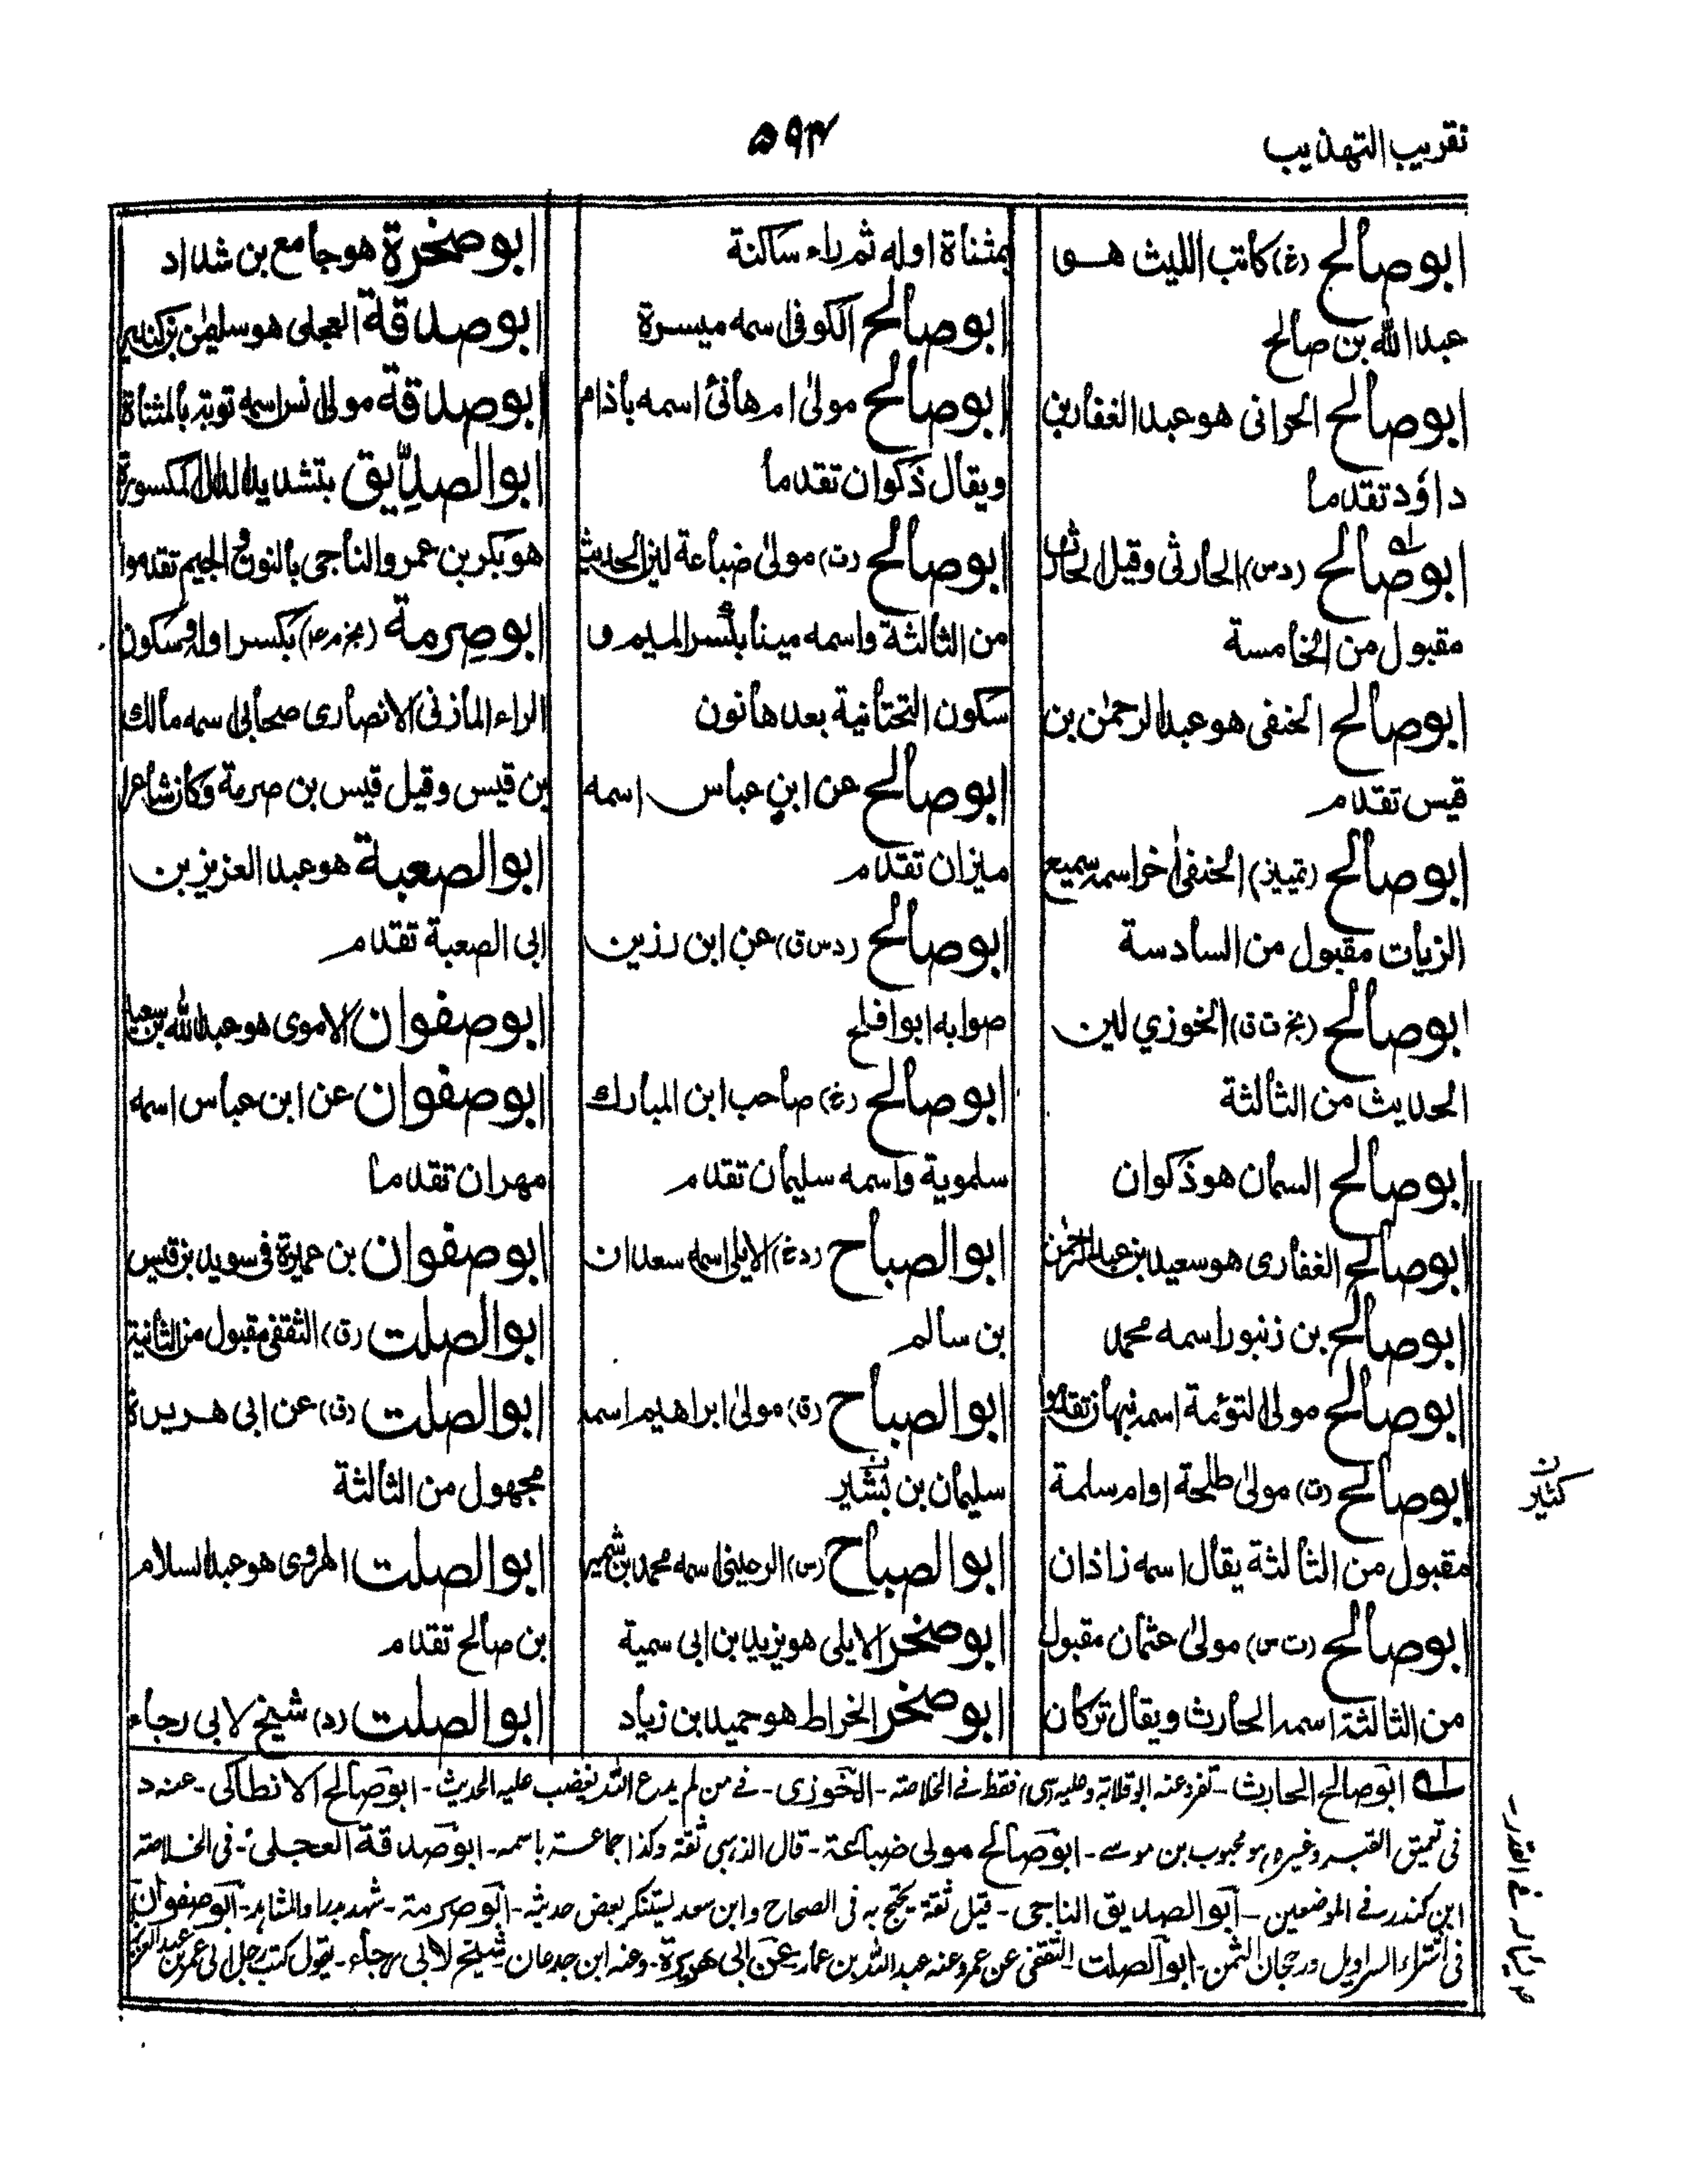 تقريب التهذيب
۵۹۴
ابو صالح (خ) كاتب الليث هو
عبد الله بن صالح
ابو صالح الحرانى هو عبد الغفار بن
داؤد تقدما
ابو صالح (د س) الحارثى وقيل الحارث
مقبول من الخامسة
ابو صالح الحنفى هو عبد الرحمٰن بن
قيس تقدم
ابو صالح (تمييز) الحنفى اخر اسمه سميع
الزيات مقبول من السادسة
ابو صالح (بخ ت ق) الخوزي لين
الحديث من الثالثة
ابو صالح السمان هو ذكوان
ابو صالح الغفارى هو سعيد بن عبد الرحمٰن
ابو صالح بن زنبور اسمه محمد
ابو صالح مولى التوءمة اسمه نبهان تقدموا
ابو صالح (ت) مولىٰ طلحة او ام سلمة
مقبول من الثالثة يقال اسمه زاذان
ابو صالح (ت س) مولىٰ عثمان مقبول
من الثالثة اسمه الحارث ويقال تركان
بمثناة اوله ثم راء ساكنة
ابو صالح الكوفى اسمه ميسرة
ابو صالح مولىٰ ام هانئ اسمه باذام
ويقال ذكوان تقدما
ابو صالح (ت) مولىٰ ضباعة لين الحديث
من الثالثة واسمه مينا بكسر الميم و
سكون التحتانية بعدها نون
ابو صالح عن ابن عباس اسمه
ميزان تقدم
ابو صالح (د س ق) عن ابن رزين
صوابه ابو افلح
ابو صالح (خ) صاحب ابن المبارك
سلموية واسمه سليمان تقدم
ابو الصباح (د غ) الايلى اسمه سعدان
بن سالم
ابو الصباح (ق) مولىٰ ابراهيم اسمه
سليمان بن بشير
ابو الصباح (س) الرعينى اسمه محمد بن شمير
ابو صخر الايلى هو يزيد بن ابى سمية
ابو صخر الخراط هو حميد ابن زياد
ابو صخرة هو جامع بن شداد
ابو صدقة العجلى هو سليمٰن بن كندير
ابو صدقة مولى انس اسمه توبة بالمثناة
ابو الصدِّيق بتشديد الدال المكسورة
هو بكر بن عمرو الناجى بالنون والجيم تقدموا
ابو صِرمة (بخ م عه) بكسر اوله وسكون
الراء المازنى الانصارى صحابى اسمه مالك
بن قيس وقيل قيس بن صرمة وكان شاعرا
ابو الصعبة هو عبد العزيز بن
ابى الصعبة تقدم
ابو صفوان الاموى هو عبد الله بن سعيد
ابو صفوان عن ابن عباس اسمه
مهران تقدما
ابو صفوان بن عميرة فى سويد بن قيس
ابو الصلت (ق) الثقفى مقبول من الثانية
ابو الصلت (ق) عن ابى هريرة
مجهول من الثالثة
ابو الصلت الهروى هو عبد السلام
بن صالح تقدم
ابو الصلت (د) شيخ لابى رجاء
ن
كثير
له ابو صالح الحارث - تفرد عنه ابو قلابة وعليه (سى) فقط فے الخلاصة - الخوزى - فے من لم يدع الله يغضب عليه الحديث - ابو صالح الانطاكى - عند د
فى تعميق القبر وغيره هو محبوب بن موسے - ابو صالح مولى ضباعة - قال الذهبى ثقة وكذا جماعة باسمه - ابو صدقة العجلى - فى الخلاصة
ابن كندر فے الموضعين - ابو الصديق الناجى - قيل ثقة يحتج به فى الصحاح وابن سعد يستنكر بعض حديثه - ابو صرمة - شهد بدرا والمشاهد - ابو صفوان
فى اشتراء السراويل ورجحان الثمن - ابو الصلت الثقفى عن عمر وعنه عبد الله بن عمار - عن ابى هريرة - وعنه ابن جدعان شيخ لابى رجاء - يقول كتب رجل الى عمر بن عبد العزيز